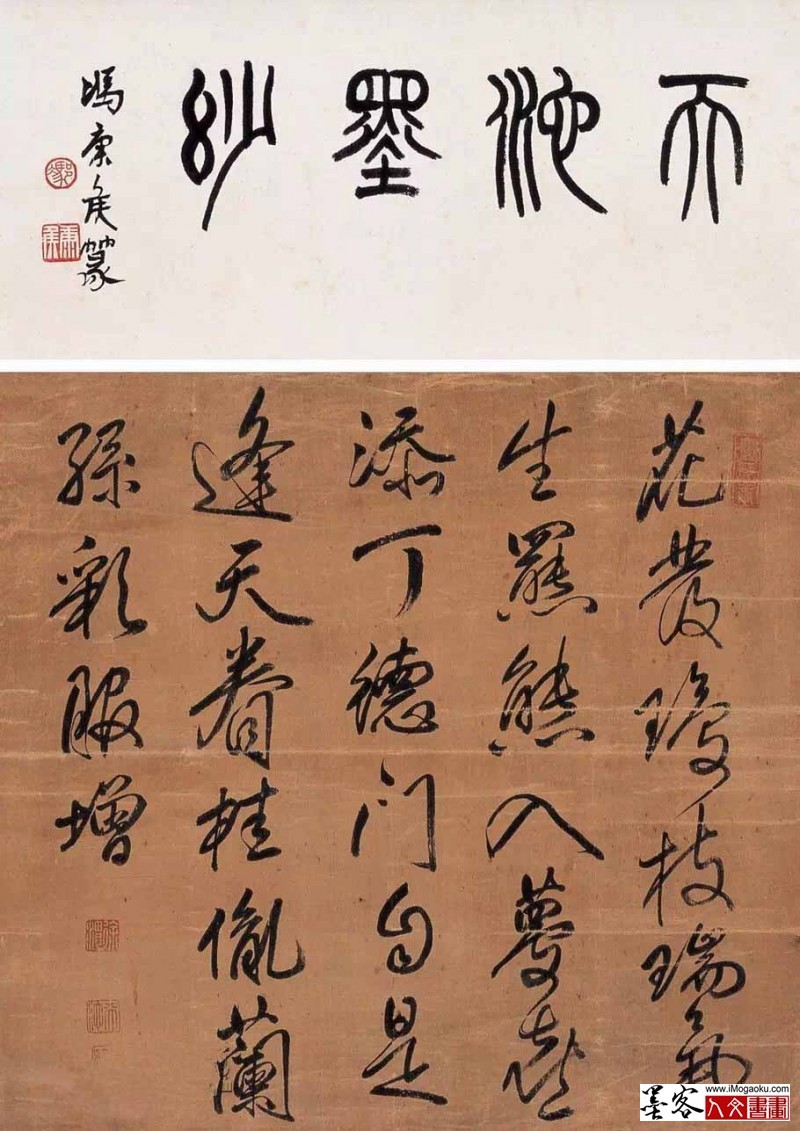 天池墨妙
馮康侯篆
康侯
花發瓊枝瑞氣
生羆熊入夢喜
添丁德門自是
逢天眷桂胤蘭
孫彩服增
www.iMogaoku.com
墨客人文書畫